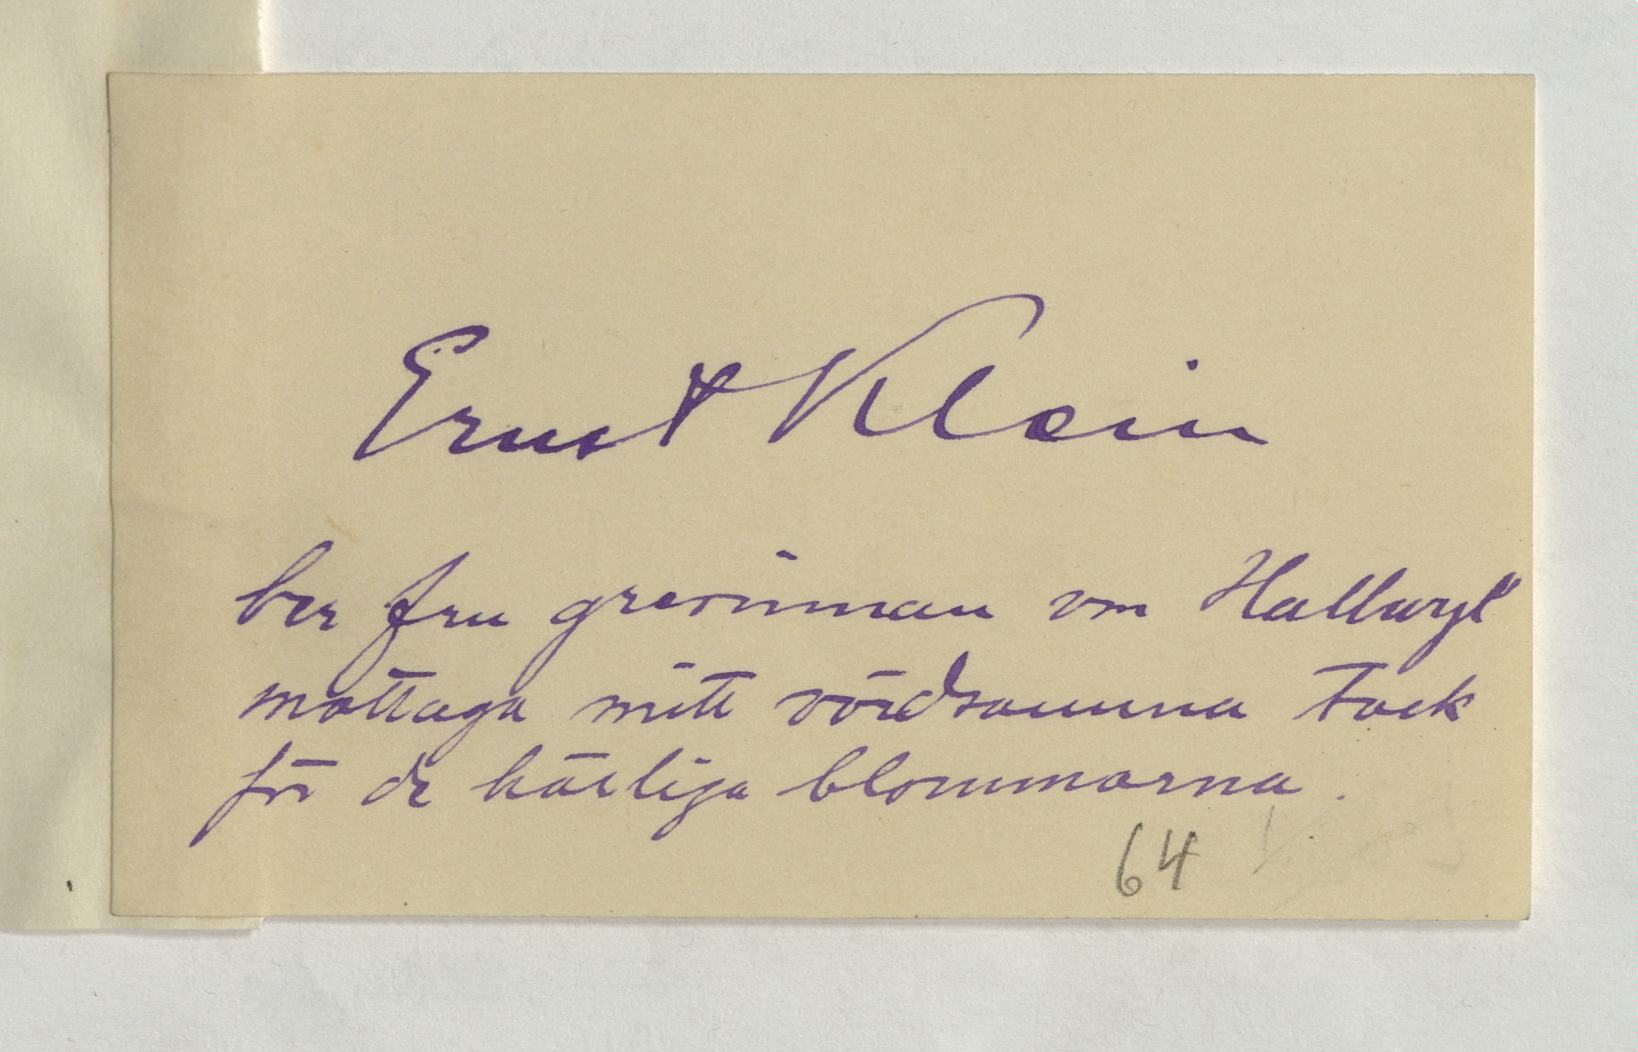 Ernst Klein
ber fru grevinnan von Hallwyl
mottaga mitt vördsamma tack
för de härliga blommorna.
64